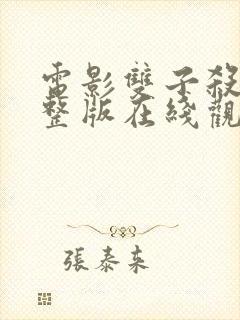 電影雙子殺
整版在綫觀
張泰来